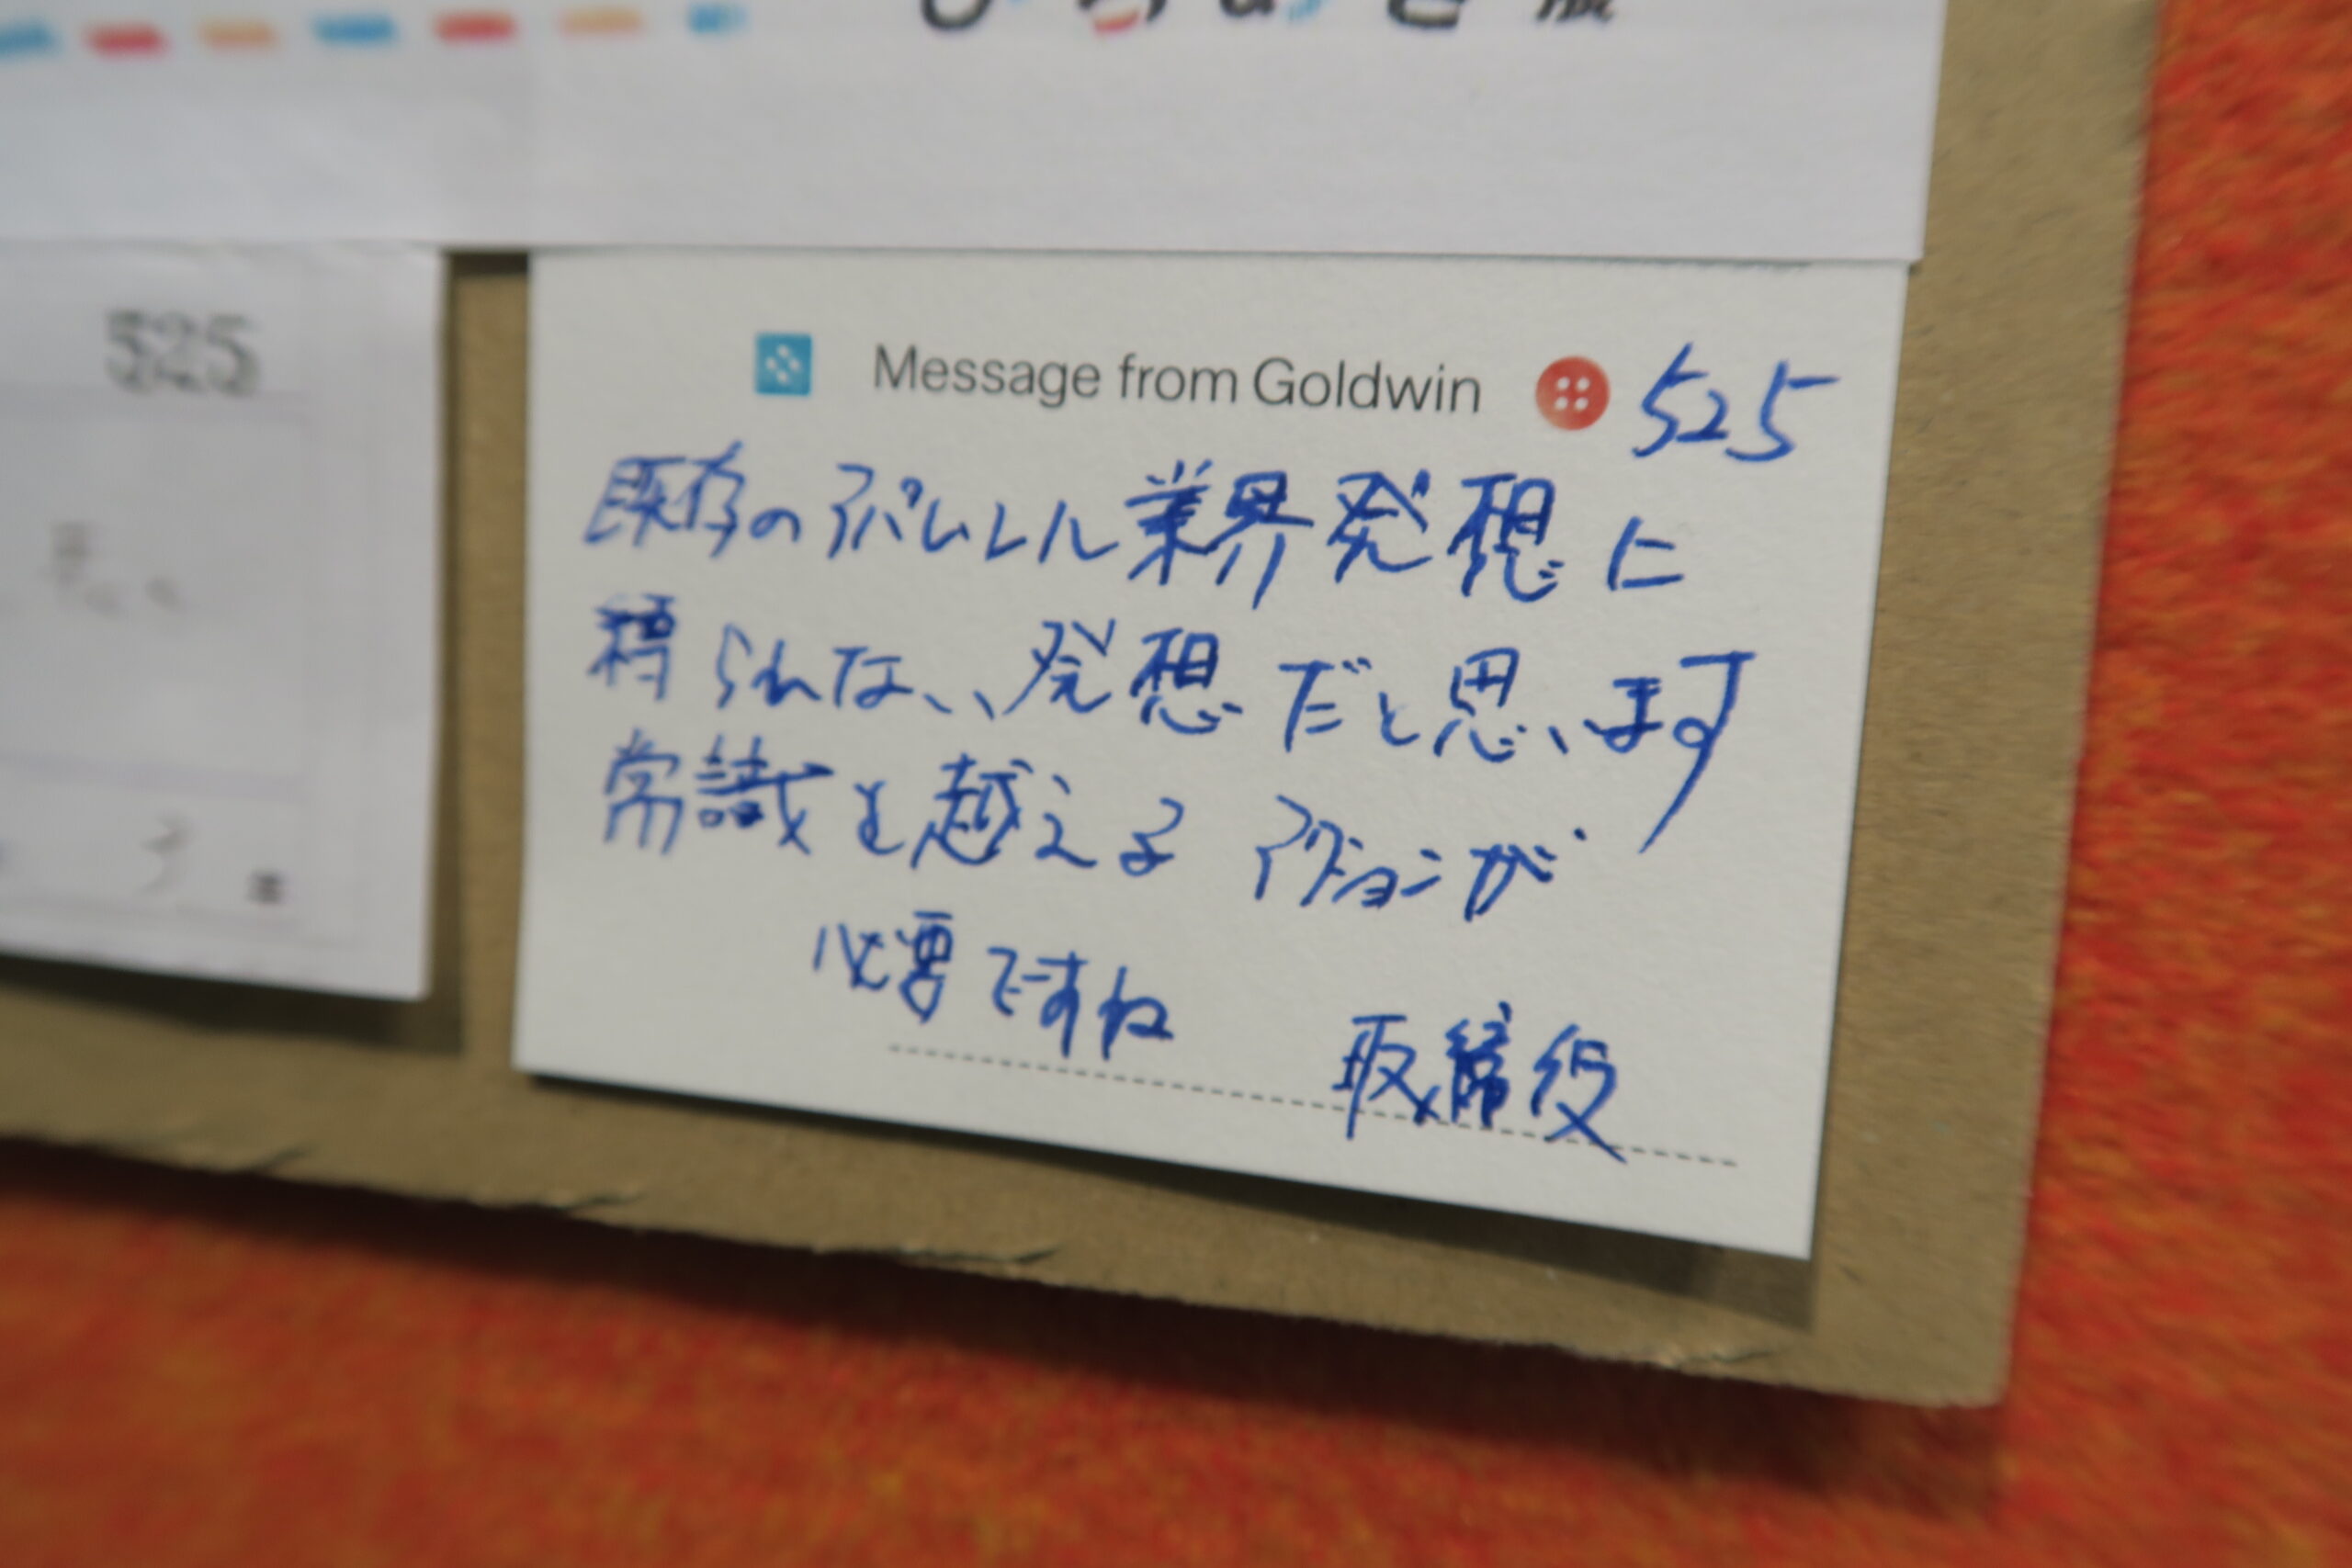 525
Message from Goldwin 525
既存のアパレル業界発想に
られない発想だと思います
常識を越えるアクションが
必要ですね
取締役